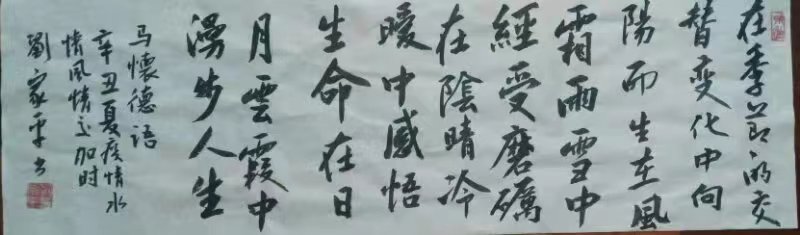 在季节的交
替变化中向
陽而生在風
霜雨雪中
經受磨礪
在陰晴冷
暖中感悟
生命在日
月雲霞中
漫步人生
马懷德語
辛丑夏疫情水
情風情交加时
劉家平书